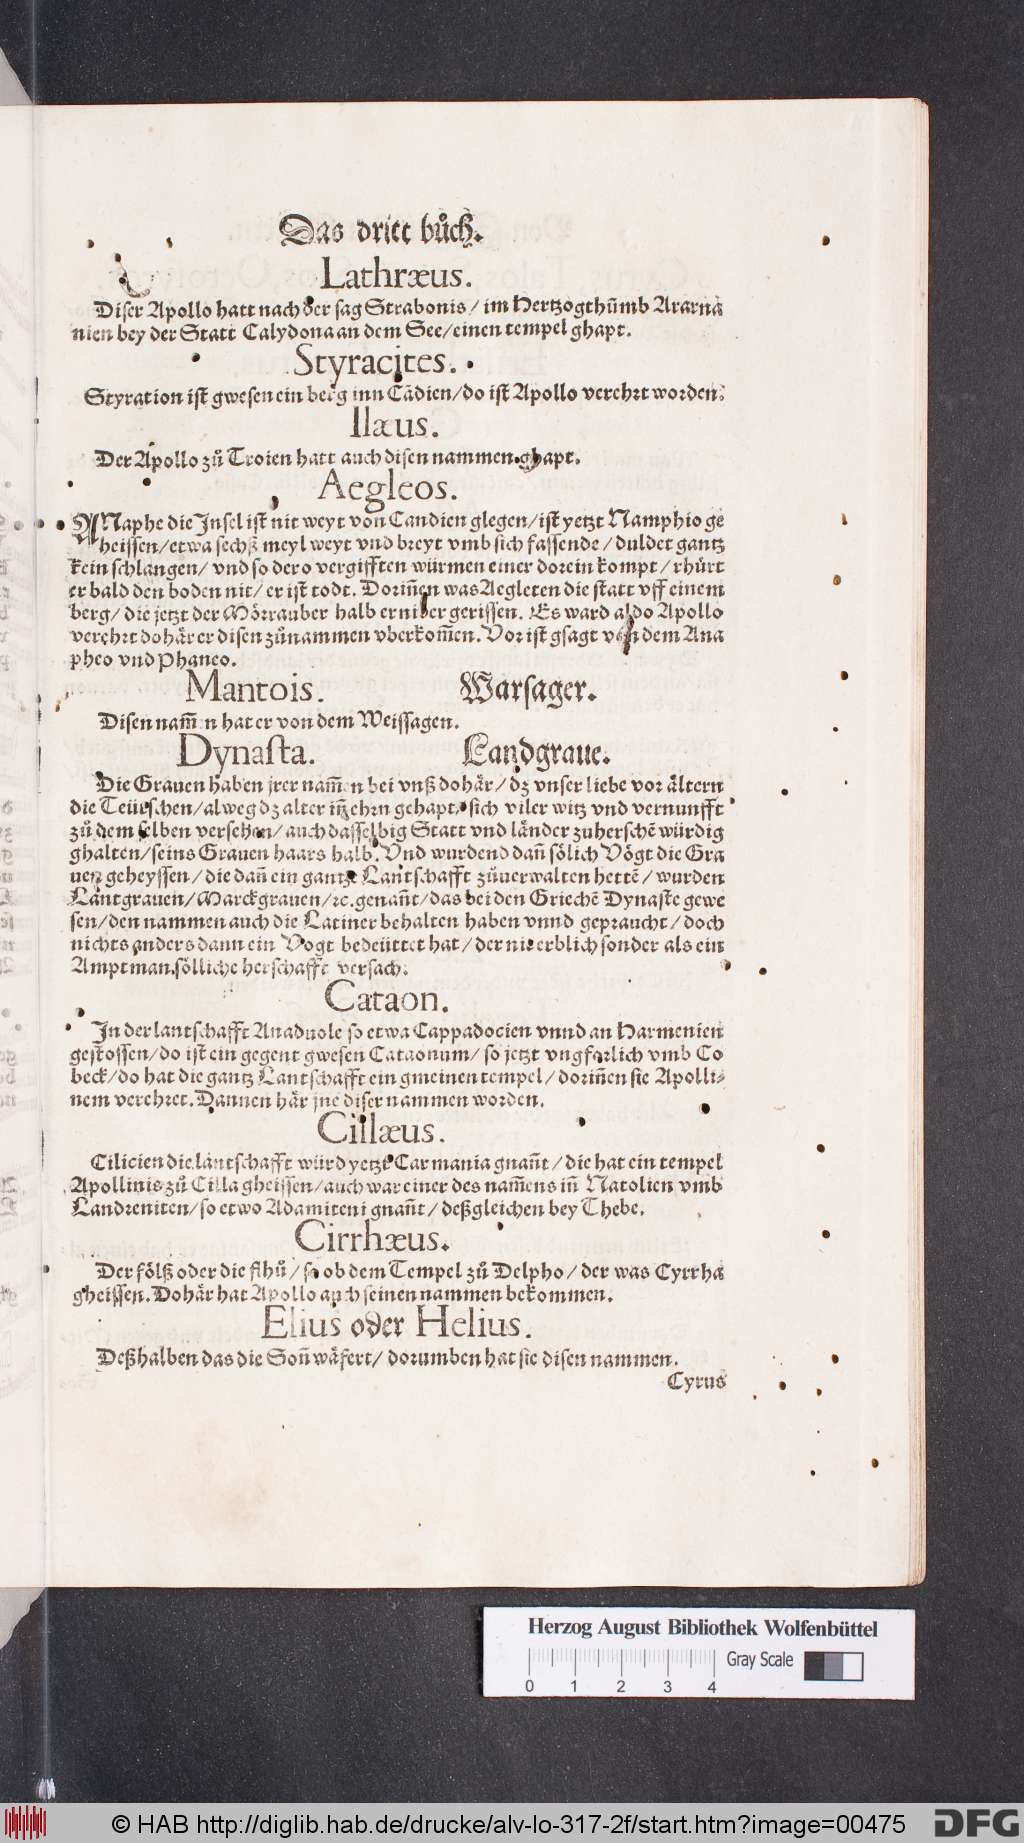 Das dritt bůch.
Lathræus.
Diser Apollo hatt nach der sag Strabonis / im Hertzogthůmb Ararna
nien bey der Statt Calydona an dem See / einen tempel ghapt.
Styracites.
Styration ist gwesen ein berg inn Cãdien / do ist Apollo verehrt worden.
Ilæus.
Der Apollo zů Troien hatt auch disen nammen ghapt.
Aegleos.
ANaphe die Jnsel ist nit weyt von Candien glegen / ist yetzt Namphio ge
heissen / etwa sechß meyl weyt vnd breyt vmb sich fassende / duldet gantz
kein schlangen / vnd so dero vergifften würmen einer dorein kompt / rhürt
er bald den boden nit / er ist todt. Doriñen was Aegleten die statt vff einem
berg / die jetzt der Mörrauber halb erniber gerissen. Es ward aldo Apollo
verehrt dohär er disen zůnammen vberkom̃en. Vor ist gsagt von dem Ana
pheo vnd Phaneo.
Mantois. Warsager.
Disen nam̃en hat er von dem Weissagen.
Dynasta. Landgraue.
Die Grauen haben jrer nam̃en bei vnß dohär / dz vnser liebe vor ältern
die Teütschen / alweg dz alter iñ ehrn gehapt / sich viler witz vnd vernunfft
zů dem selben versehen / auch dasselbig Statt vnd länder zuherschẽ würdig
ghalten / seins Grauen haars halb. Vnd wurdend dañ sölich Vögt die Gra
uen geheyssen / die dañ ein gantze Lantschafft zůuerwalten hettẽ / wurden
Läntgrauen / Marckgrauen / ꝛc. genañt / das bei den Griechẽ Dynaste gewe
sen / den nammen auch die Latiner behalten haben vnnd gepraucht / doch
nichts anders dann ein Vogt bedeüttet hat / der nit erblich sonder als ein
Amptman sölliche herschafft versach.
Cataon.
Jn der lantschafft Anaduole so etwa Cappadocien vnnd an Harmenien
gestossen / do ist ein gegent gwesen Cataonum / so jetzt vngfarlich vmb Co
beck / do hat die gantz Lantschafft ein gmeinen tempel / doriñen sie Apolli⸗
nem verehret. Dannen här jne diser nammen worden.
Cillæus.
Cilicien die lantschafft würd yetzt Carmania gnañt / die hat ein tempel
Apollinis zů Cilla gheissen / auch war einer des nam̃ens iñ Natolien vmb
Landreniten / so etwo Adamiteni gnañt / deßgleichen bey Thebe.
Cirrhæus.
Der fölß oder die flhů / so ob dem Tempel zů Delpho / der was Cyrrha
gheissen. Dohär hat Apollo auch seinen nammen bekommen.
Elius oder Helius.
Deßhalben das die Soñ wäfert / dorumben hat sie disen nammen.
Cyrus
Herzog August Bibliothek Wolfenbüttel
Gray Scale
0 1 2 3 4
© HAB http://diglib.hab.de/drucke/alv-lo-317-2f/start.htm?image=00475
DFG